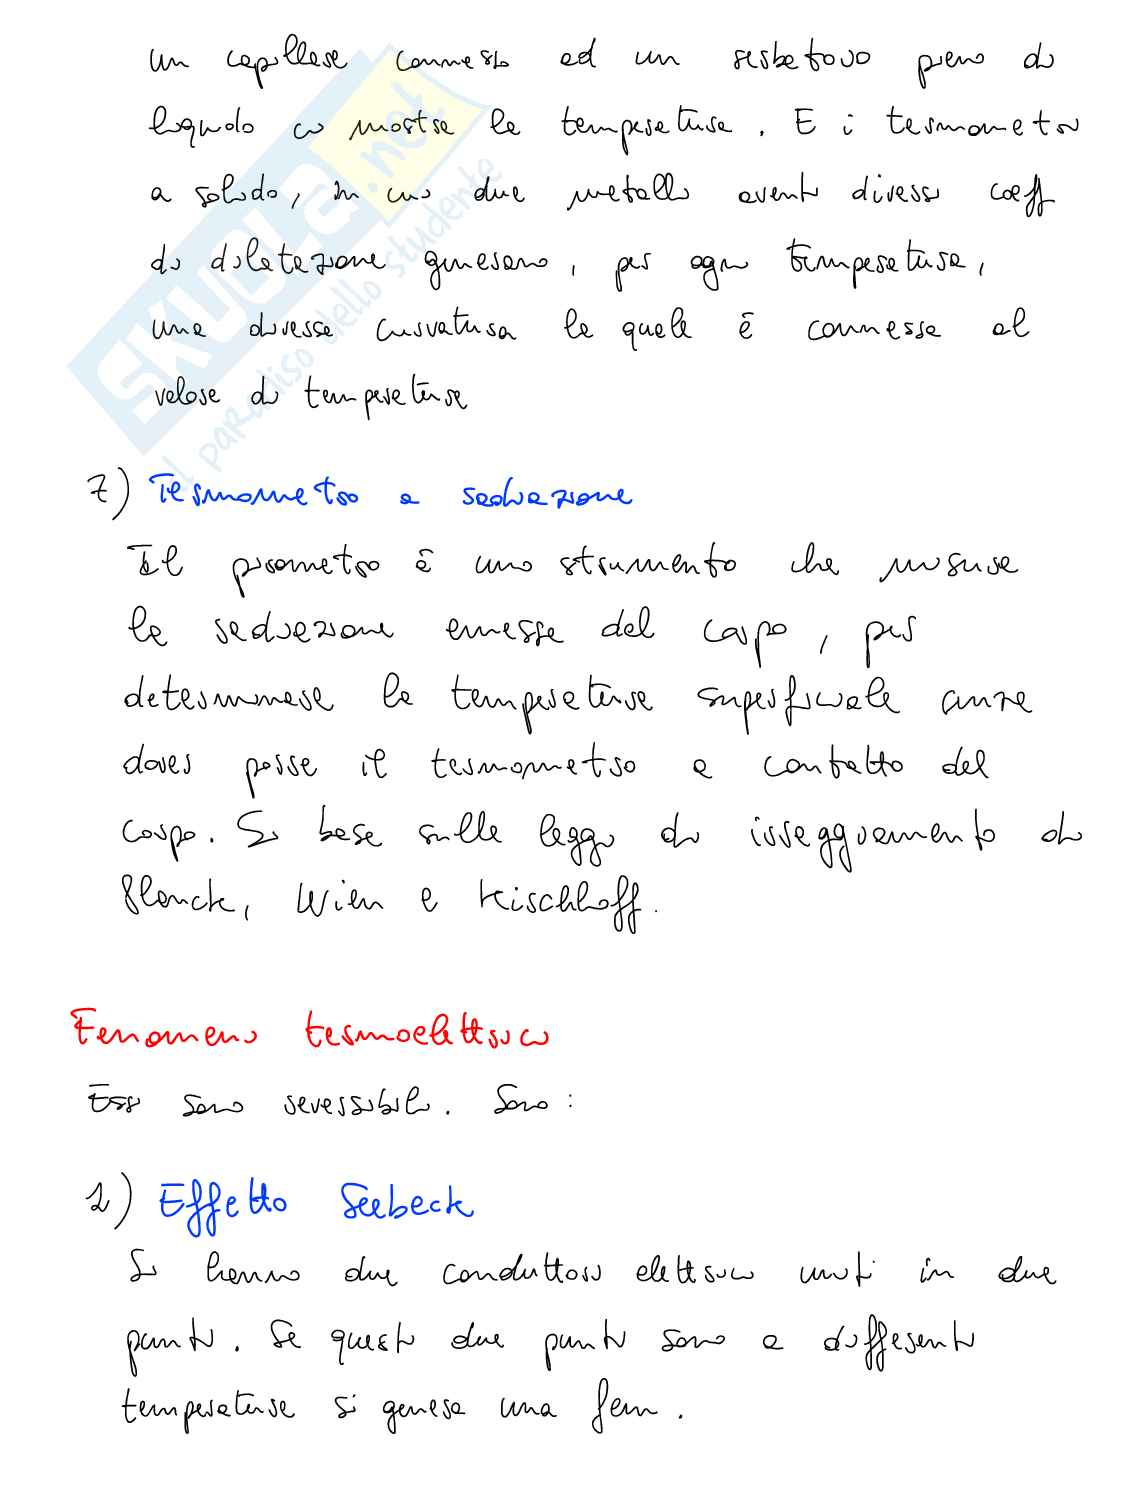 un capillare connesso ad un serbatoio pieno di
liquido ci mostra la temperatura. E i termometri
a solido, in cui due metalli aventi diversi coeff
di dilatazione generano, per ogni temperatura,
una diversa curvatura la quale è connessa al
valore di temperatura
7) Termometro a radiazione
Il pirometro è uno strumento che misura
la radiazione emessa dal corpo, per
determinare la temperatura superficiale senza
dover porre il termometro a contatto del
corpo. Si basa sulle leggi di irraggiamento di
Planck, Wien e Kirchhoff.
Fenomeni termoelettrici
Essi sono reversibili. Sono:
1) Effetto Seebeck
Si hanno due conduttori elettrici uniti in due
punti. Se questi due punti sono a differenti
temperature si genera una fem.
SKUOLA.net
il paradiso dello studente